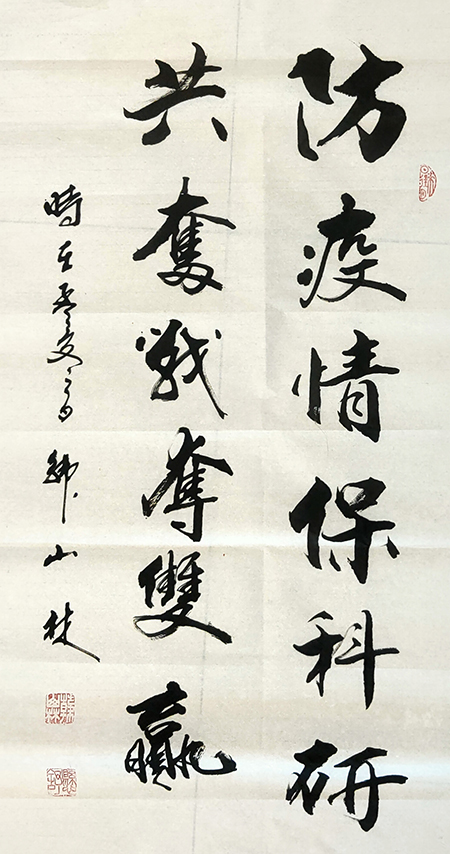 防疫情保科研
共奮戰奪雙贏
時在夏山